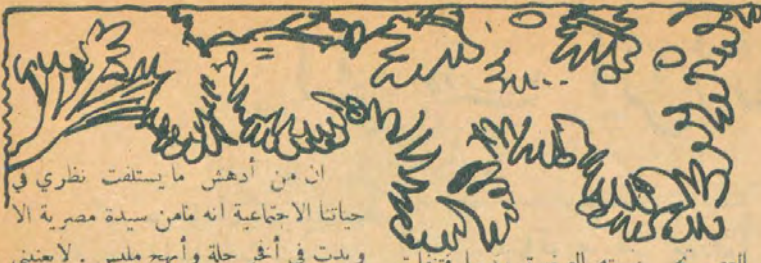 ان من أدهش ما يستلفت نظري في
حياتنا الاجتماعية انه مامن سيدة مصرية الا
وبدت في أفخر حلة وأبهج ملبس . لا يعنيني